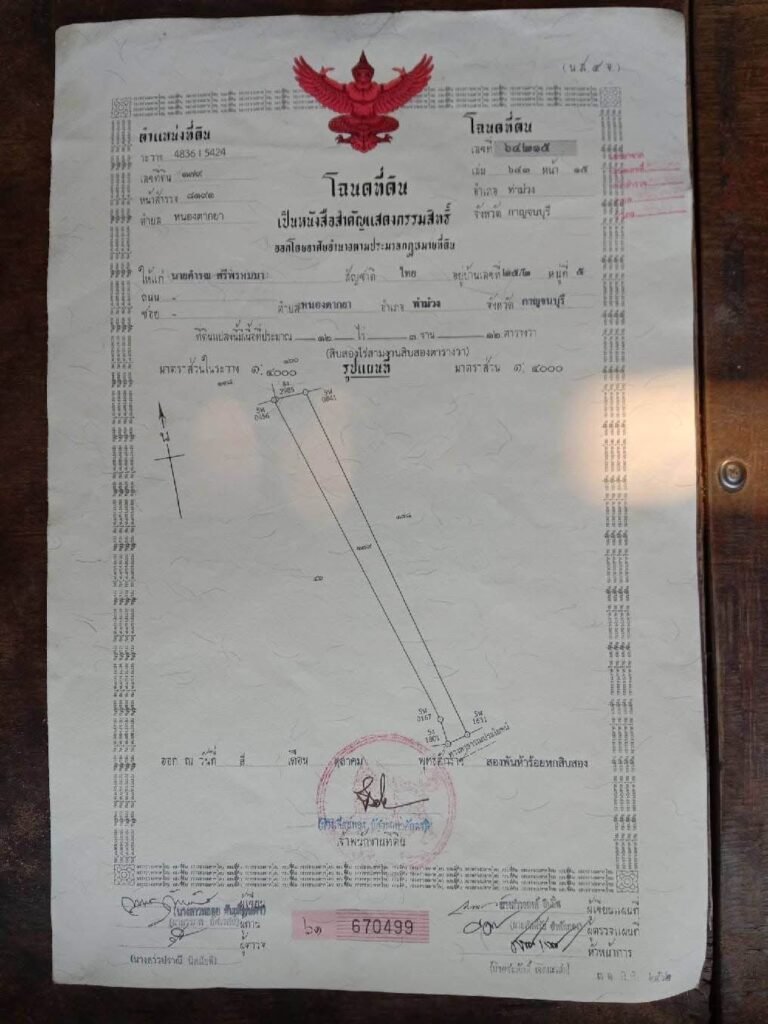 (น.ส. ๔ จ.)
ตำแหน่งที่ดิน
ระวาง 4836 I 5424
เลขที่ดิน ๑๗๙
หน้าสำรวจ ๘๑๙๑
ตำบล หนองตากยา
โฉนดที่ดิน
เลขที่ ๖๔๒๑๕
เล่ม ๖๔๓ หน้า ๑๕
อำเภอ ท่าม่วง
จังหวัด กาญจนบุรี
โฉนดที่ดิน
เป็นหนังสือสำคัญแสดงกรรมสิทธิ์
ออกโดยอาศัยอำนาจตามประมวลกฎหมายที่ดิน
ให้แก่ นายดำรณ ศรีพรหมมา สัญชาติ ไทย อยู่บ้านเลขที่ ๒๕/๒ หมู่ที่ ๕
ถนน -
ซอย - ตำบล หนองตากยา อำเภอ ท่าม่วง จังหวัด กาญจนบุรี
ที่ดินแปลงนี้มีเนื้อที่ประมาณ ๑๒ ไร่ ๓ งาน ๑๒ ตารางวา
(สิบสองไร่สามงานสิบสองตารางวา)
มาตราส่วนในระวาง ๑: ๔๐๐๐ รูปแผนที่ มาตราส่วน ๑: ๔๐๐๐
2985
0156
0841
น
๑๗๘
๑๗๙
๕๓
0167
1831
1801
ทางสาธารณประโยชน์
ออก ณ วันที่ สี่ เดือน ตุลาคม พุทธศักราช สองพันห้าร้อยหกสิบสอง
เจ้าพนักงานที่ดิน
ผู้เขียน
ผู้ทาน
ผู้ตรวจ
๖๑ 670499
ผู้เขียนแผนที่
ผู้ตรวจแผนที่
หัวหน้าการ